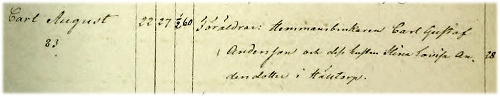 Carl August 22 27 1/2 60 Föräldrar: Hemmansbrukaren Carl Gustaf
83 Andersson och dess hustru Stina Lovisa An- 28
dersdotter i